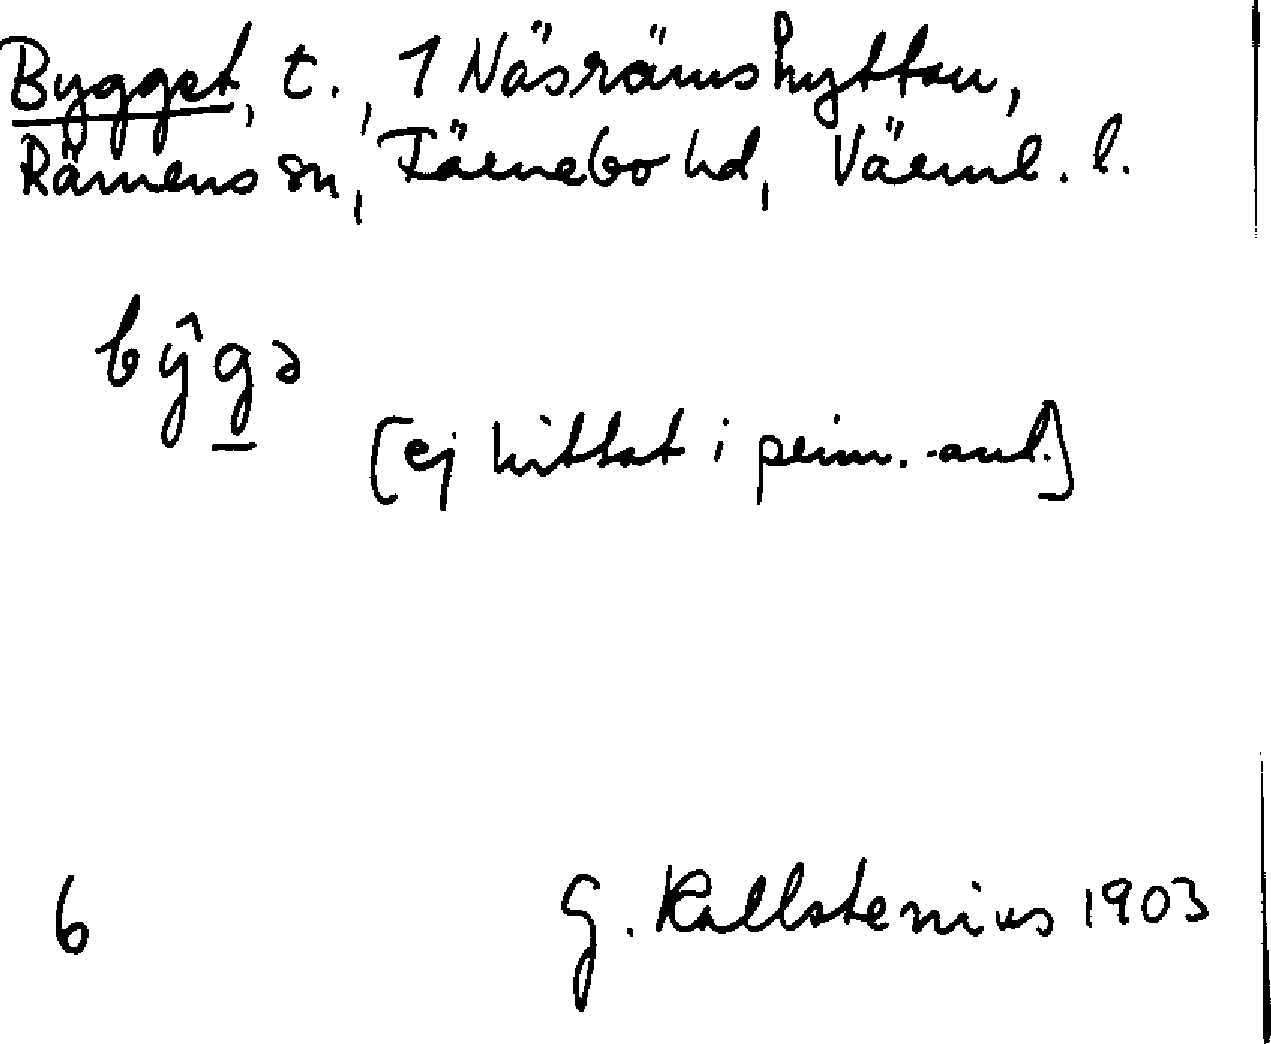 Bygget, t., 1 Näsrämshyttan,
Rämens sn, Färnebo hd, Värml. l.
by̑gə
[ej hittat i prim.-anl.]
6
G. Kallstenius 1903